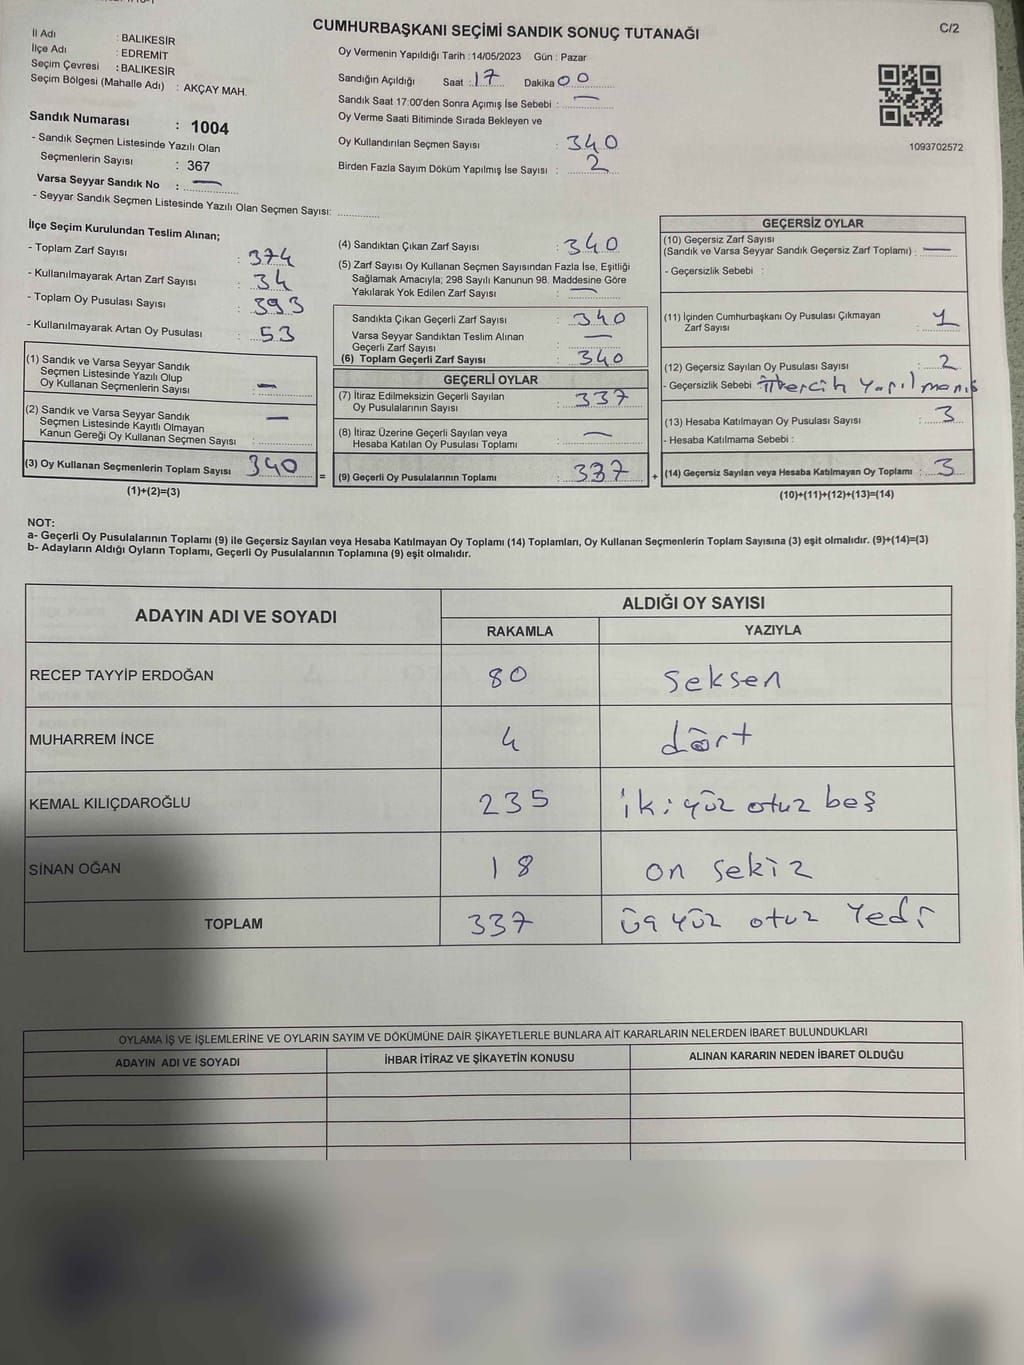 CUMHURBAŞKANI SEÇİMİ SANDIK SONUÇ TUTANAĞI
C/2
İl Adı : BALIKESİR
İlçe Adı : EDREMİT
Seçim Çevresi : BALIKESİR
Seçim Bölgesi (Mahalle Adı) : AKÇAY MAH.
Sandık Numarası : 1004
- Sandık Seçmen Listesinde Yazılı Olan
Seçmenlerin Sayısı : 367
Varsa Seyyar Sandık No : —
- Seyyar Sandık Seçmen Listesinde Yazılı Olan Seçmen Sayısı:
Oy Vermenin Yapıldığı Tarih :14/05/2023 Gün : Pazar
Sandığın Açıldığı Saat : 17 Dakika 00
Sandık Saat 17:00'den Sonra Açımış İse Sebebi : —
Oy Verme Saati Bitiminde Sırada Bekleyen ve
Oy Kullandırılan Seçmen Sayısı : 340
Birden Fazla Sayım Döküm Yapılmış İse Sayısı : 2
1093702572
İlçe Seçim Kurulundan Teslim Alınan;
- Toplam Zarf Sayısı : 374
- Kullanılmayarak Artan Zarf Sayısı : 34
- Toplam Oy Pusulası Sayısı : 393
- Kullanılmayarak Artan Oy Pusulası : 53
(1) Sandık ve Varsa Seyyar Sandık
Seçmen Listesinde Yazılı Olup
Oy Kullanan Seçmenlerin Sayısı : —
(2) Sandık ve Varsa Seyyar Sandık
Seçmen Listesinde Kayıtlı Olmayan
Kanun Gereği Oy Kullanan Seçmen Sayısı : —
(3) Oy Kullanan Seçmenlerin Toplam Sayısı 340
(1)+(2)=(3)
(4) Sandıktan Çıkan Zarf Sayısı : 340
(5) Zarf Sayısı Oy Kullanan Seçmen Sayısından Fazla İse, Eşitliği
Sağlamak Amacıyla; 298 Sayılı Kanunun 98. Maddesine Göre
Yakılarak Yok Edilen Zarf Sayısı : —
Sandıkta Çıkan Geçerli Zarf Sayısı : 340
Varsa Seyyar Sandıktan Teslim Alınan
Geçerli Zarf Sayısı : —
(6) Toplam Geçerli Zarf Sayısı : 340
GEÇERLİ OYLAR
(7) İtiraz Edilmeksizin Geçerli Sayılan
Oy Pusulalarının Sayısı : 337
(8) İtiraz Üzerine Geçerli Sayılan veya
Hesaba Katılan Oy Pusulası Toplamı : —
=
(9) Geçerli Oy Pusulalarının Toplamı : 337
+
GEÇERSİZ OYLAR
(10) Geçersiz Zarf Sayısı
(Sandık ve Varsa Seyyar Sandık Geçersiz Zarf Toplamı) : —
- Geçersizlik Sebebi :
(11) İçinden Cumhurbaşkanı Oy Pusulası Çıkmayan
Zarf Sayısı : 1
(12) Geçersiz Sayılan Oy Pusulası Sayısı : 2
- Geçersizlik Sebebi yapılmamış
(13) Hesaba Katılmayan Oy Pusulası Sayısı : 3
- Hesaba Katılmama Sebebi :
(14) Geçersiz Sayılan veya Hesaba Katılmayan Oy Toplamı : 3
(10)+(11)+(12)+(13)=(14)
NOT:
a- Geçerli Oy Pusulalarının Toplamı (9) ile Geçersiz Sayılan veya Hesaba Katılmayan Oy Toplamı (14) Toplamları, Oy Kullanan Seçmenlerin Toplam Sayısına (3) eşit olmalıdır. (9)+(14)=(3)
b- Adayların Aldığı Oyların Toplamı, Geçerli Oy Pusulalarının Toplamına (9) eşit olmalıdır.
ADAYIN ADI VE SOYADI
ALDIĞI OY SAYISI
RAKAMLA YAZIYLA
RECEP TAYYİP ERDOĞAN 80 Seksen
MUHARREM İNCE 4 dört
KEMAL KILIÇDAROĞLU 235 iki yüz otuz beş
SİNAN OĞAN 18 on sekiz
TOPLAM 337 üç yüz otuz yedi
OYLAMA İŞ VE İŞLEMLERİNE VE OYLARIN SAYIM VE DÖKÜMÜNE DAİR ŞİKAYETLERLE BUNLARA AİT KARARLARIN NELERDEN İBARET BULUNDUKLARI
ADAYIN ADI VE SOYADI İHBAR İTİRAZ VE ŞİKAYETİN KONUSU ALINAN KARARIN NEDEN İBARET OLDUĞU